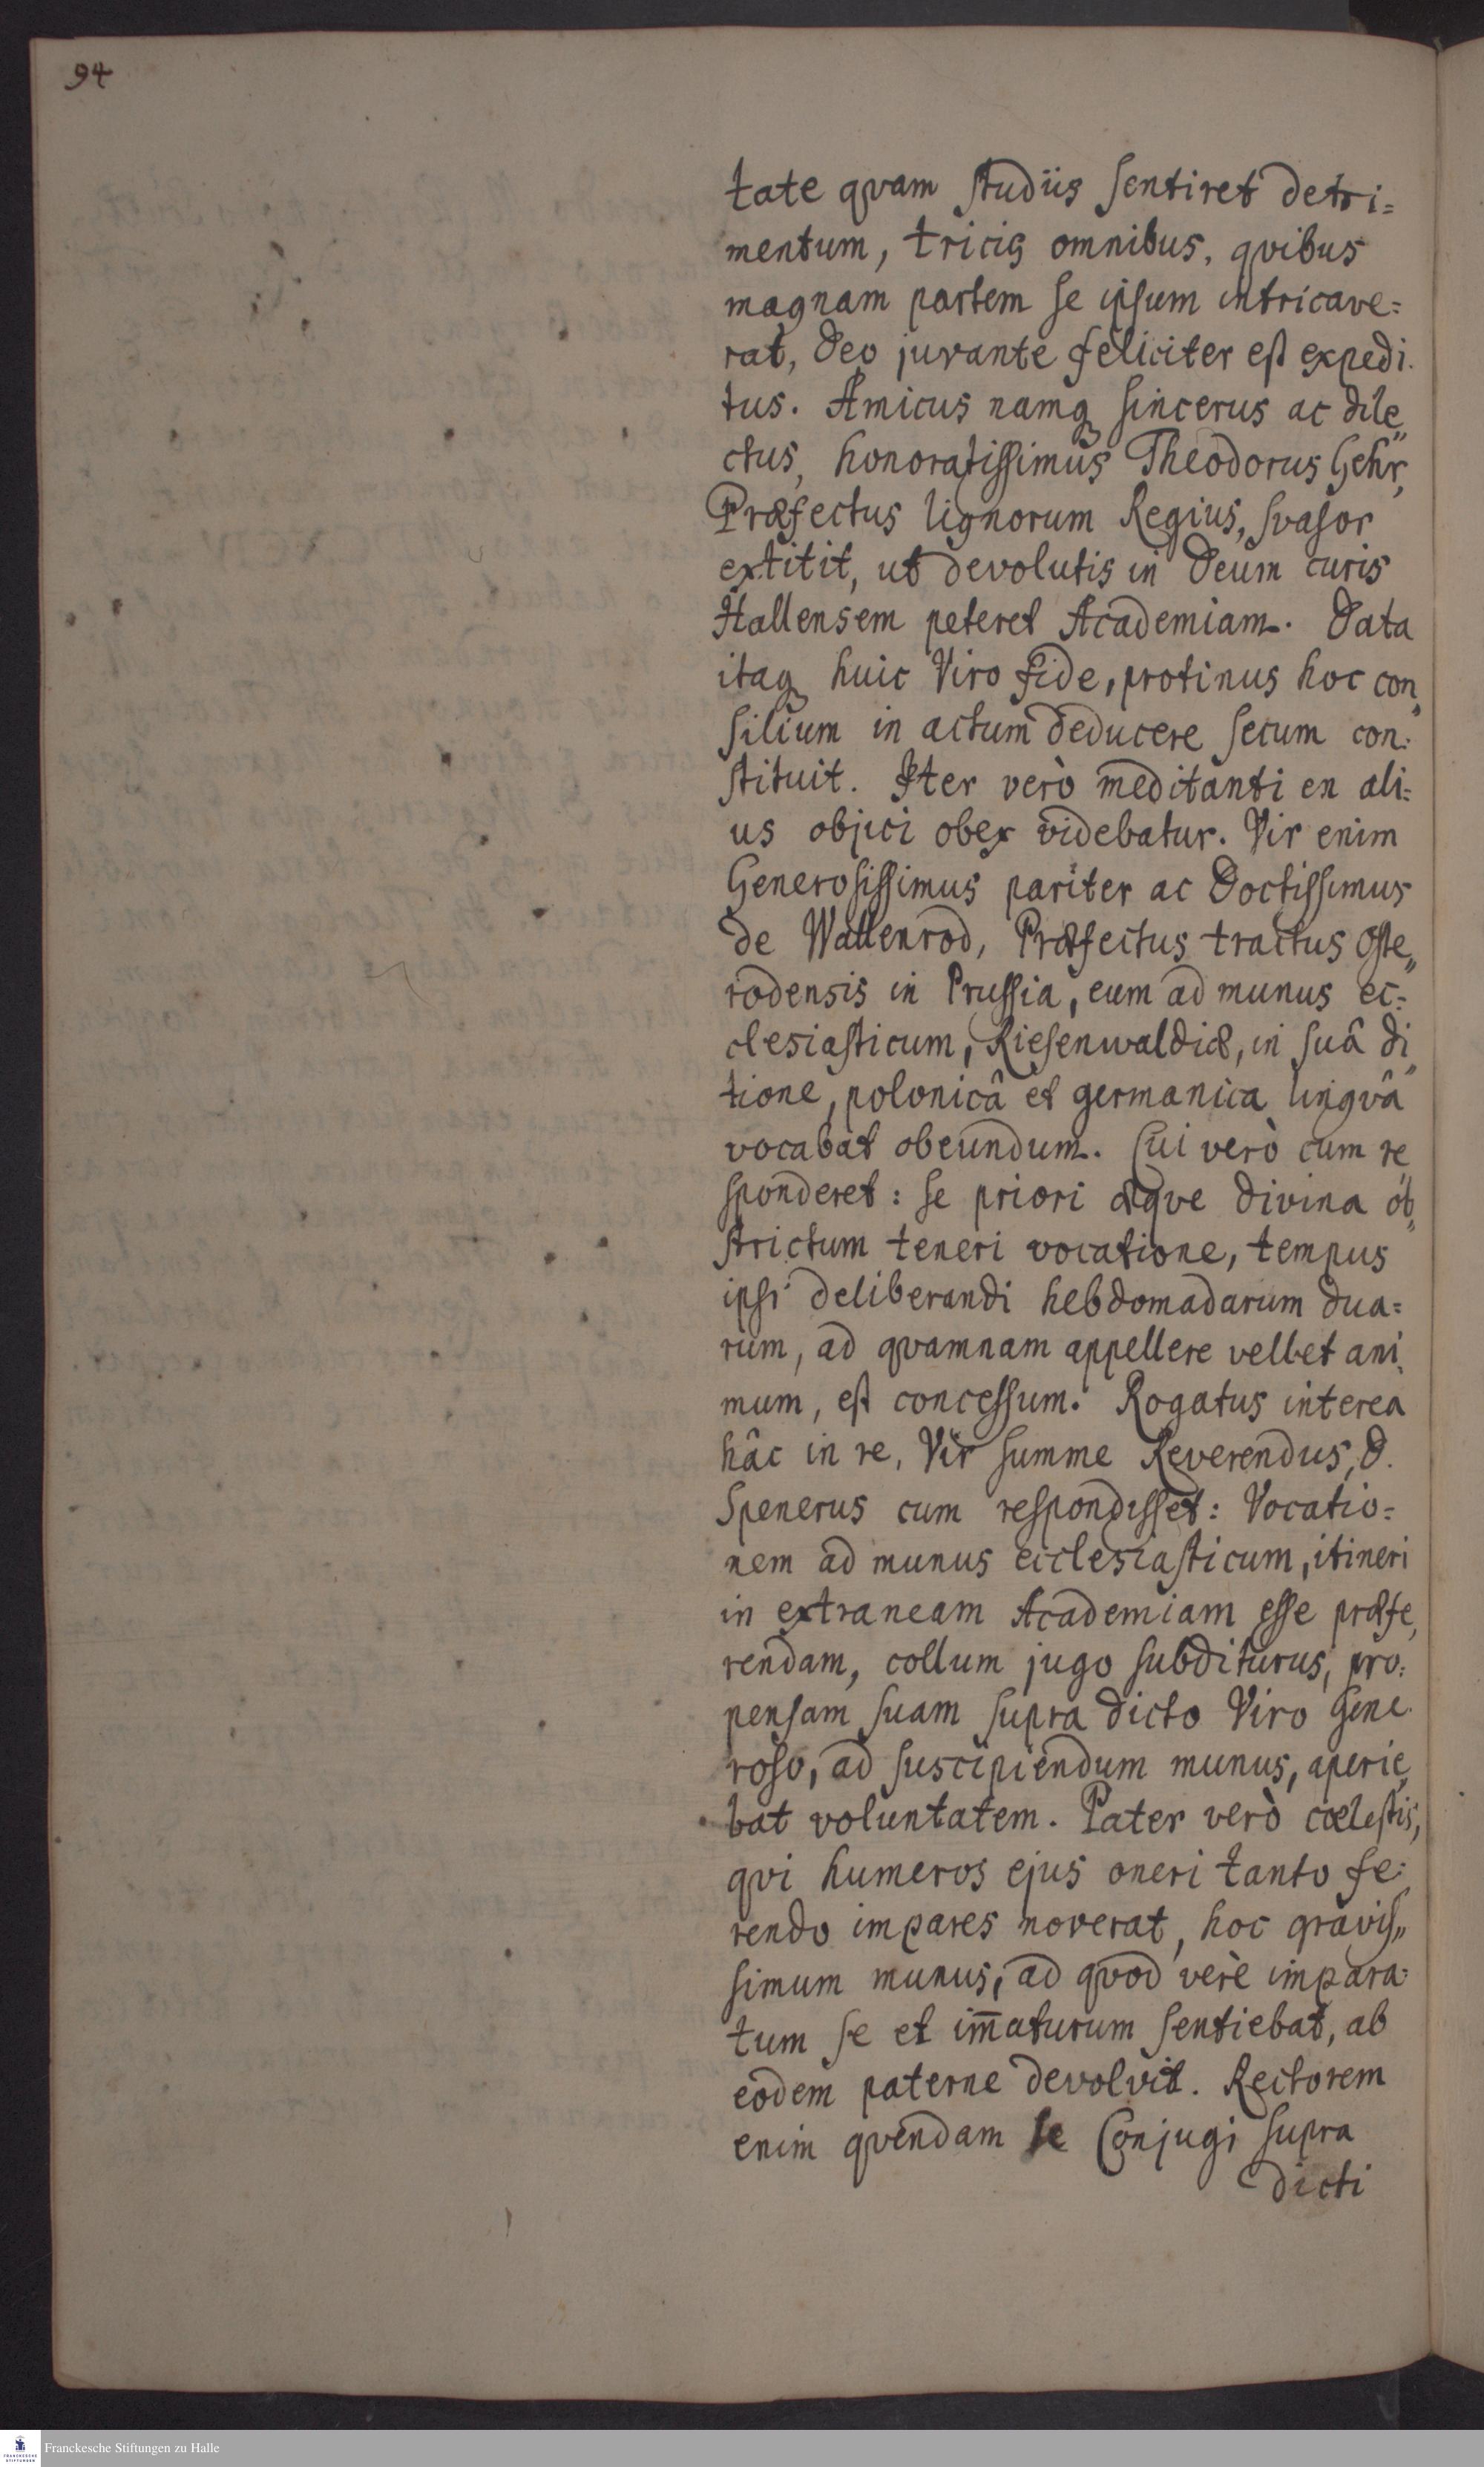 94
tate qvam studiis sentiret detri=
mentum, tricis omnibus, qvibus
magnam partem se ipsum intricave=
rat, Deo juvante feliciter est expedi=
tus. Amicus namq sincerus ac dile„
ctus, honoratissimus Theodorus Gehr,
Præfectus lignorum Regius, svasor
extitit, ut devolutis in Deum curis
Hallensem peteret Academiam. Data
itaq huic Viro fide, protinus hoc con„
silium in actum deducere secum con=
stituit. Iter verò meditanti en ali=
us objici obex videbatur. Vir enim
Generosissimus pariter ac Doctissimus
de Wallenrod, Præfectus tractus Oste„
rodensis in Prussia, eum ad munus ec=
clesiasticum, Riesenwaldiæ, in suâ di„
tione, polonicâ et germanica lingvâ
vocabat obeundum. Cui verò cum re„
sponderet: se priori æqve divina ob„
strictum teneri vocatione, tempus
ipsi deliberandi hebdomadarum dua=
rum, ad qvamnam appellere vellet ani„
mum, est concessum. Rogatus interea
hâc in re, Vir summe Reverendus, D.
Spenerus cum respondisset: Vocatio=
nem ad munus ecclesiasticum, itineri
in extraneam Academiam esse præfe„
rendam, collum jugo subditurus, pro=
pensam suam supra dicto Viro Gene
roso, ad suscipiendum munus, aperie„
bat voluntatem. Pater verò cœlestis,
qvi humeros ejus oneri tanto fe=
rendo impares noverat, hoc gravis„
simum munus, ad qvod verè impara=
tum se et im̄aturum sentiebat, ab
eodem paterne devolvit. Rectorem
enim qvendam se Conjugi supra
dicti
Franckesche Stiftungen zu Halle